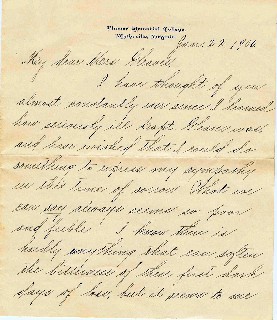 Plumer Memorial College
Wytheville, Virginia
June 22 1906
My dear Miss
I have thought of you
almost constantly ever since I learned
how seriously ill Capt. was
and have wished that I could do
something to express my sympathy
in this time of sorrow. What we
can say always seems so poor
and feeble. I know there is
hardly anything that can soften
the bitterness of these first dark
days of loss, but it seems to me